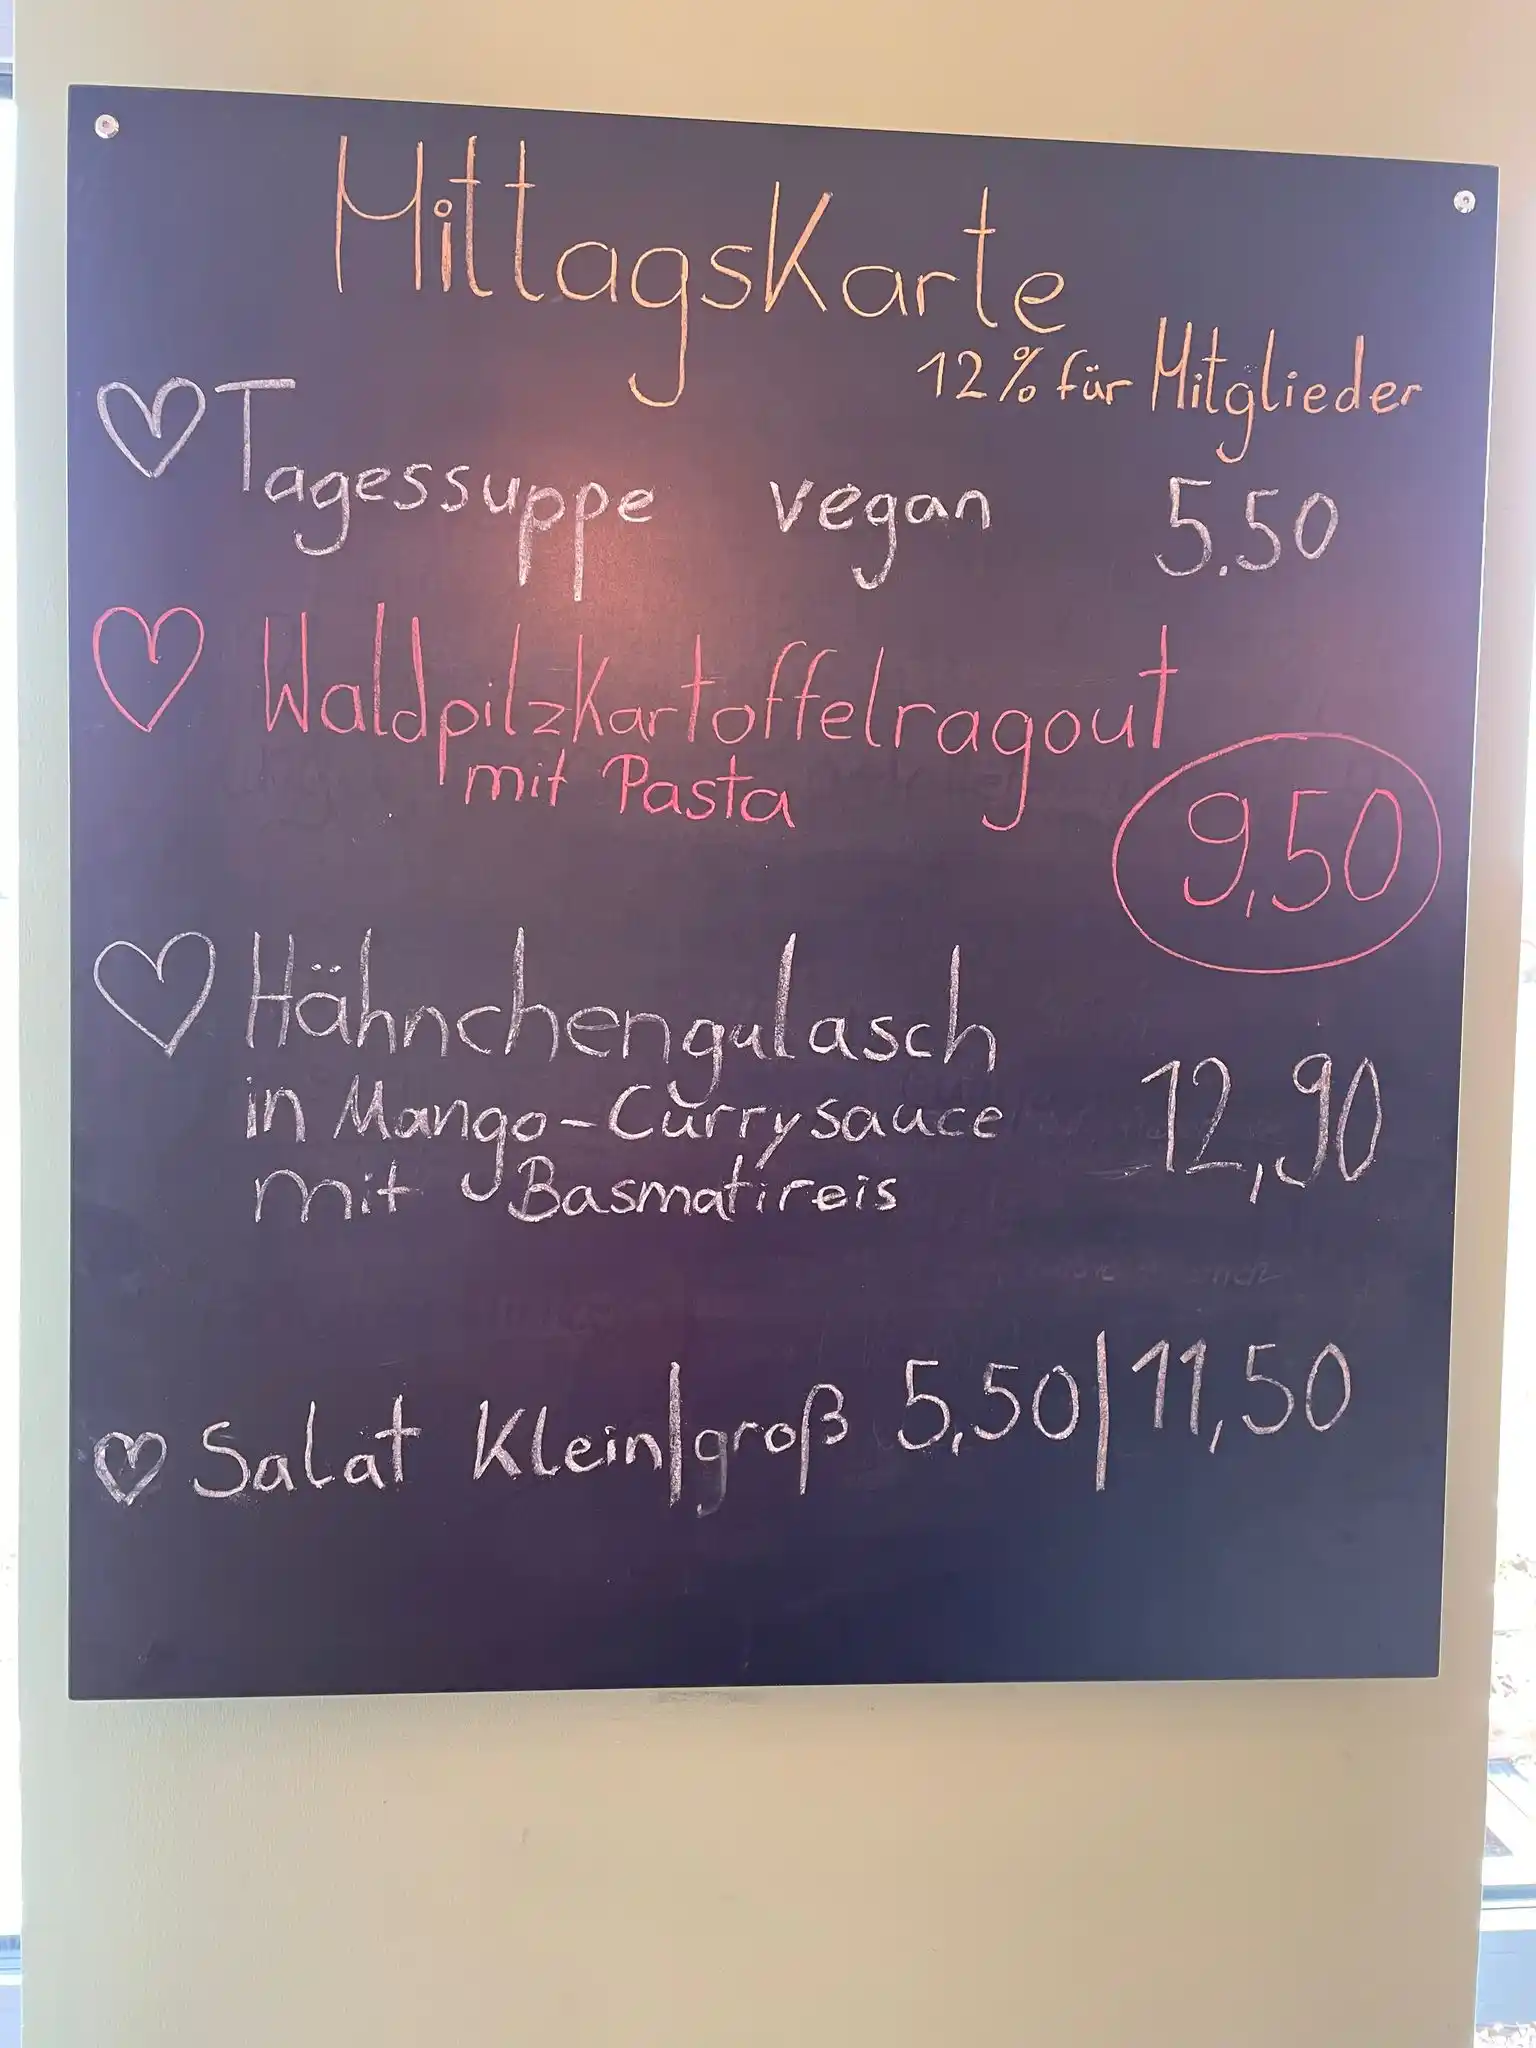 Mittagskarte
12% für Mitglieder
Tagessuppe vegan 5.50
Waldpilzkartoffelragout
mit Pasta
9,50
Hähnchengulasch
in Mango-Currysauce 12,90
mit Basmatireis
Salat klein|groß 5,50|11,50